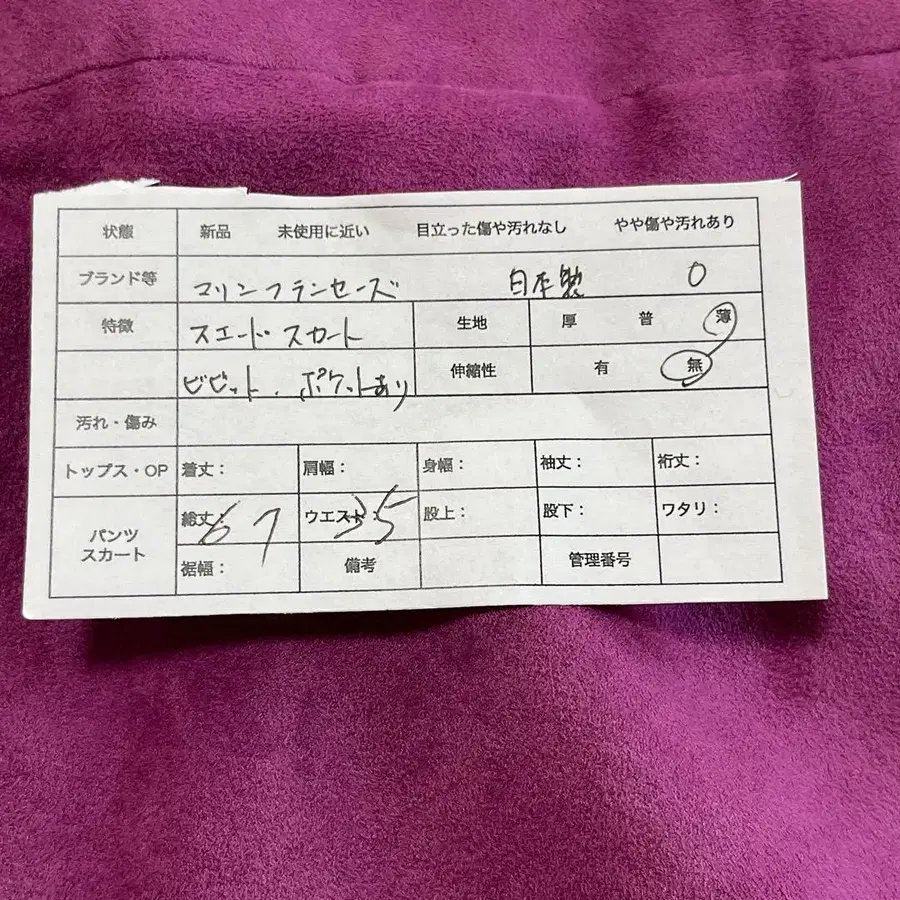 状態 新品 未使用に近い 目立った傷や汚れなし やや傷や汚れあり
ブランド等 マリンフランセーズ 日本製 0
特徴 スエードスカート 生地 厚 普 薄
ビビット、ポケットあり 伸縮性 有 無
汚れ・傷み
トップス・OP 着丈: 肩幅: 身幅: 袖丈: 裄丈:
パンツ スカート 総丈: 67 ウエスト: 35 股上: 股下: ワタリ:
裾幅: 備考 管理番号